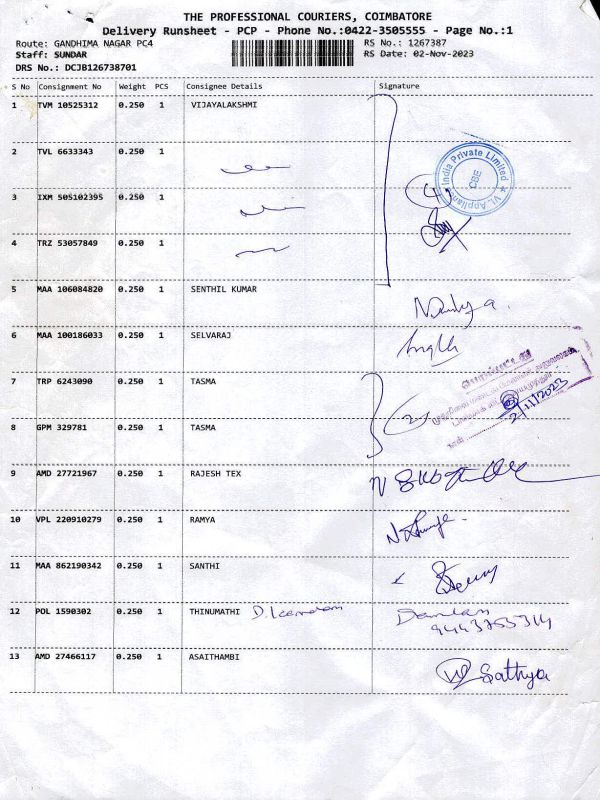 THE PROFESSIONAL COURIERS, COIMBATORE
Delivery Runsheet - PCP - Phone No.:0422-3505555 - Page No.:1
Route: GANDHIMA NAGAR PC4 RS No.: 1267387
Staff: SUNDAR RS Date: 02-Nov-2023
DRS No.: DCJB126738701
S No Consignment No Weight PCS Consignee Details Signature
1 TVM 10525312 0.250 1 VIJAYALAKSHMI
2 TVL 6633343 0.250 1
India Private Limited
CBE
3 IXM 505102395 0.250 1
4
4 TRZ 53057849 0.250 1
5 MAA 106084820 0.250 1 SENTHIL KUMAR
6 MAA 100186033 0.250 1 SELVARAJ
7 TRP 6243090 0.250 1 TASMA
2 2/11/2023
8 GPM 329781 0.250 1 TASMA
9 AMD 27721967 0.250 1 RAJESH TEX
10 VPL 220910279 0.250 1 RAMYA
11 MAA 862190342 0.250 1 SANTHI
12 POL 1590302 0.250 1 THINUMATHI
9443755314
13 AMD 27466117 0.250 1 ASAITHAMBI
Sathya